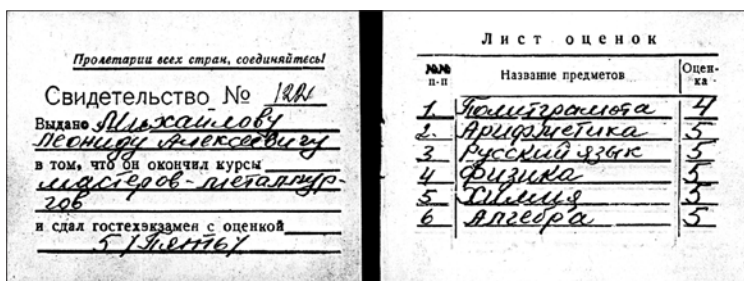 Пролетарии всех стран, соединяйтесь!
Свидетельство № 122
Выдано Михайлову
Леониду Алексеевичу
в том, что он окончил курсы
мастеров-металлур-
гов
и сдал гостехэкзамен с оценкой
5 /Пять/
Лист оценок
№№ п-п Название предметов Оцен-ка
1. Политграмота 4
2. Арифметика 5
3 Русский язык 5
4 Физика 5
5 Химия 5
6 Алгебра 5